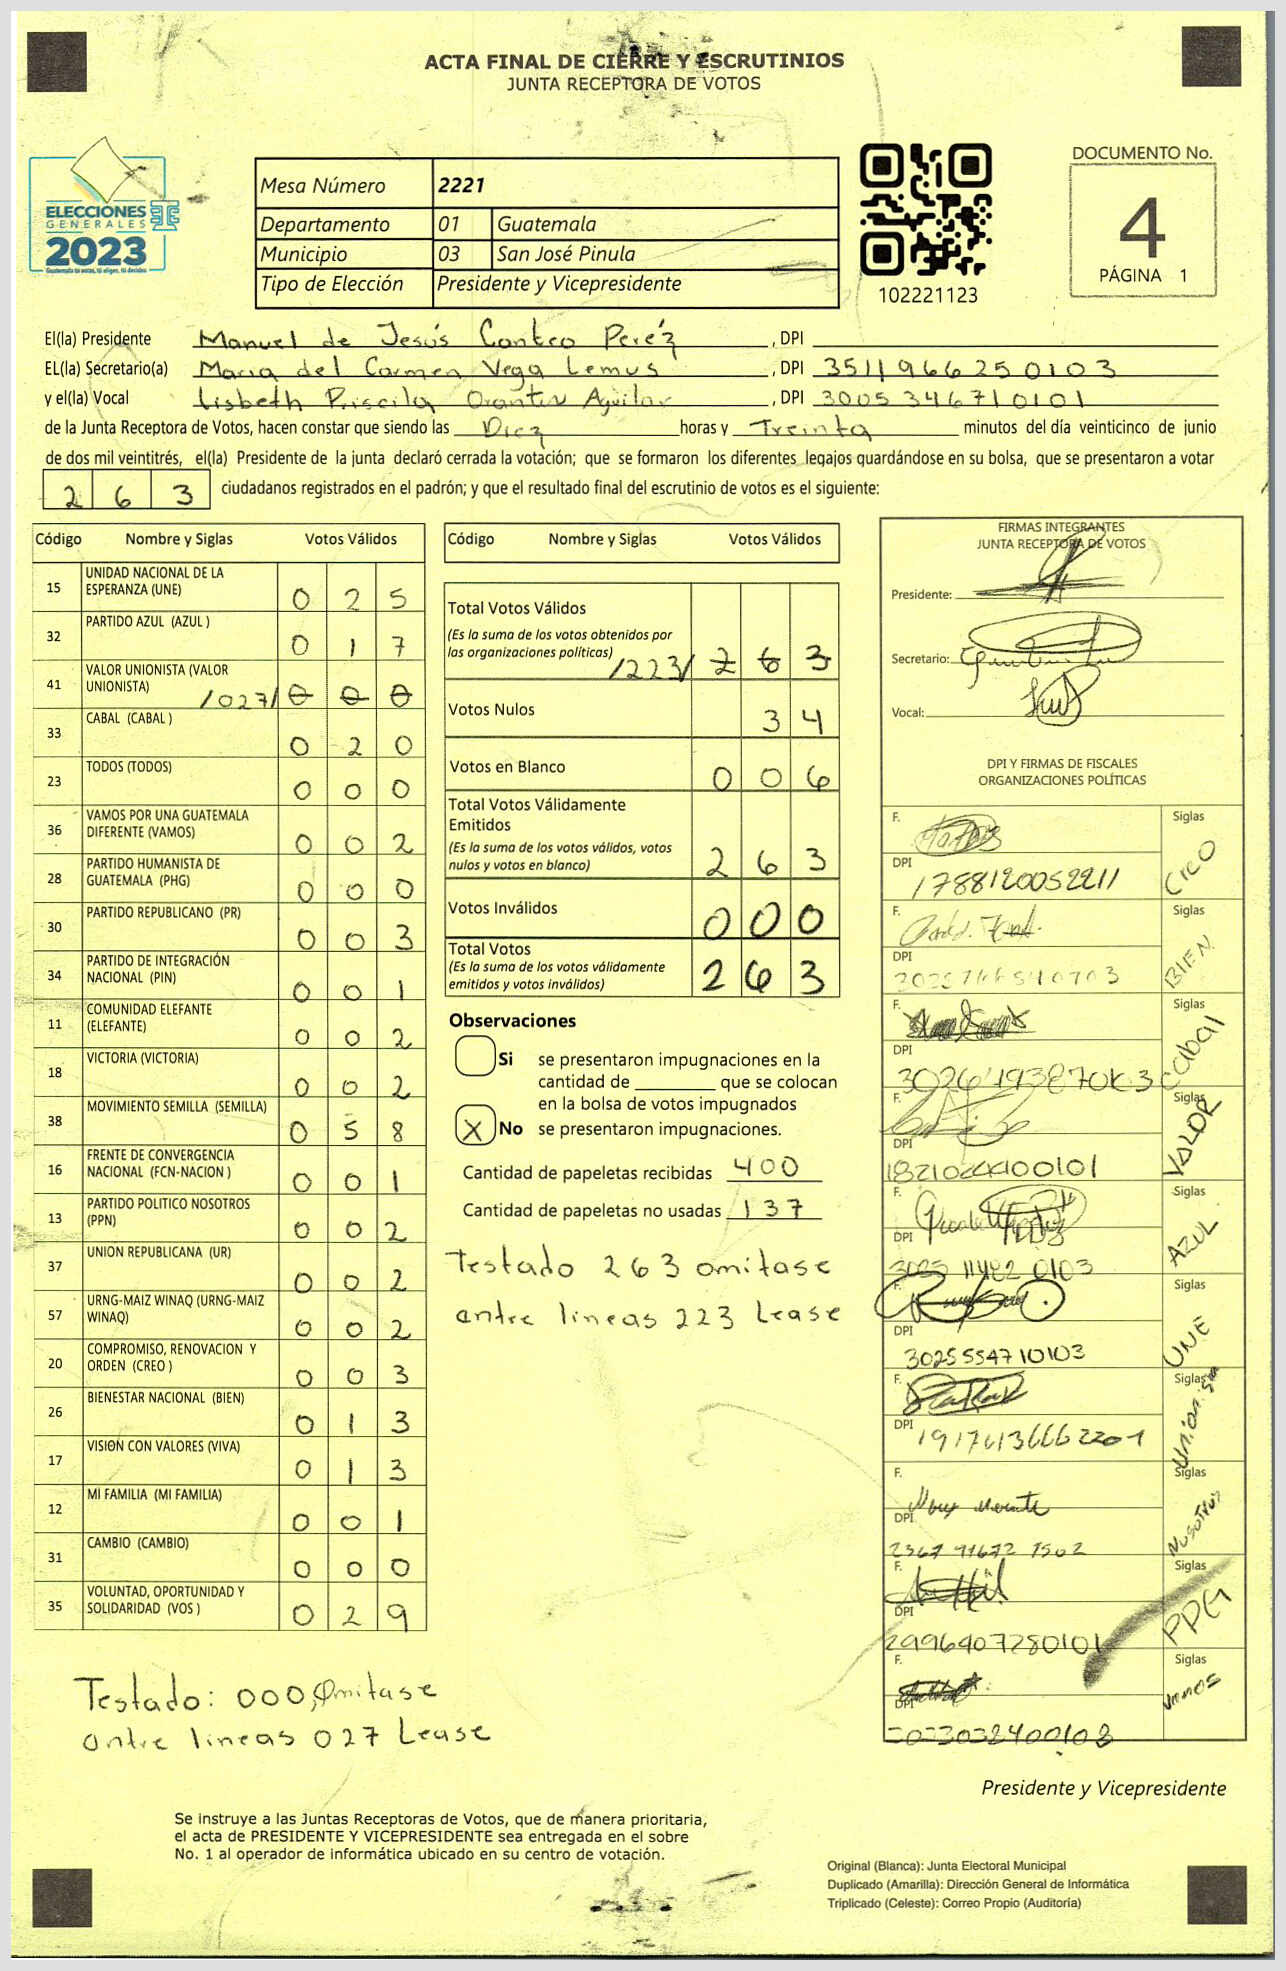 ACTA FINAL DE CIERRE Y ESCRUTINIOS
JUNTA RECEPTORA DE VOTOS
ELECCIONES
GENERALES
2023
Mesa Número 2221
Departamento 01 Guatemala
Municipio 03 San José Pinula
Tipo de Elección Presidente y Vicepresidente
102221123
DOCUMENTO No.
4
PÁGINA 1
El(la) Presidente Manuel de Jesús Perez , DPI
EL(la) Secretario(a) Maria del Carmen Vega Lemus , DPI 3511966250103
y el(la) Vocal Lisbeth Priscila Aguilar , DPI 3005346710101
de la Junta Receptora de Votos, hacen constar que siendo las Diez horas y Treinta minutos del día veinticinco de junio
de dos mil veintitrés, el(la) Presidente de la junta declaró cerrada la votación; que se formaron los diferentes legajos guardándose en su bolsa, que se presentaron a votar
263 ciudadanos registrados en el padrón; y que el resultado final del escrutinio de votos es el siguiente:
Código Nombre y Siglas Votos Válidos
15 UNIDAD NACIONAL DE LA ESPERANZA (UNE) 025
32 PARTIDO AZUL (AZUL ) 017
41 VALOR UNIONISTA (VALOR UNIONISTA) /027/ 000
33 CABAL (CABAL ) 020
23 TODOS (TODOS) 000
36 VAMOS POR UNA GUATEMALA DIFERENTE (VAMOS) 002
28 PARTIDO HUMANISTA DE GUATEMALA (PHG) 000
30 PARTIDO REPUBLICANO (PR) 003
34 PARTIDO DE INTEGRACIÓN NACIONAL (PIN) 001
11 COMUNIDAD ELEFANTE (ELEFANTE) 002
18 VICTORIA (VICTORIA) 002
38 MOVIMIENTO SEMILLA (SEMILLA) 058
16 FRENTE DE CONVERGENCIA NACIONAL (FCN-NACION ) 001
13 PARTIDO POLITICO NOSOTROS (PPN) 002
37 UNION REPUBLICANA (UR) 002
57 URNG-MAIZ WINAQ (URNG-MAIZ WINAQ) 002
20 COMPROMISO, RENOVACION Y ORDEN (CREO ) 003
26 BIENESTAR NACIONAL (BIEN) 013
17 VISION CON VALORES (VIVA) 013
12 MI FAMILIA (MI FAMILIA) 001
31 CAMBIO (CAMBIO) 000
35 VOLUNTAD, OPORTUNIDAD Y SOLIDARIDAD (VOS ) 029
Testado: 000, Omitase
entre lineas 027 Lease
Código Nombre y Siglas Votos Válidos
Total Votos Válidos
(Es la suma de los votos obtenidos por
las organizaciones políticas) /223/ 263
Votos Nulos 34
Votos en Blanco 006
Total Votos Válidamente
Emitidos
(Es la suma de los votos válidos, votos
nulos y votos en blanco) 263
Votos Inválidos 000
Total Votos
(Es la suma de los votos válidamente
emitidos y votos inválidos) 263
Observaciones
Si se presentaron impugnaciones en la
cantidad de ________ que se colocan
en la bolsa de votos impugnados
X No se presentaron impugnaciones.
Cantidad de papeletas recibidas 400
Cantidad de papeletas no usadas 137
Testado 263 omitase
entre lineas 223 Lease
FIRMAS INTEGRANTES
JUNTA RECEPTORA DE VOTOS
Presidente:
Secretario:
Vocal:
DPI Y FIRMAS DE FISCALES
ORGANIZACIONES POLÍTICAS
F. Siglas Creo
DPI 1788120052211
F. Siglas BIEN
DPI
F. Siglas Cabal
DPI
F. Siglas VALOR
DPI
F. Siglas AZUL
DPI
F. Siglas UNE
DPI 3025554710103
F. Siglas
DPI
F. Siglas Nosotros
DPI
F. Siglas
DPI 2996407280101
F. Siglas Vamos
DPI
Presidente y Vicepresidente
Se instruye a las Juntas Receptoras de Votos, que de manera prioritaria,
el acta de PRESIDENTE Y VICEPRESIDENTE sea entregada en el sobre
No. 1 al operador de informática ubicado en su centro de votación.
Original (Blanca): Junta Electoral Municipal
Duplicado (Amarilla): Dirección General de Informática
Triplicado (Celeste): Correo Propio (Auditoría)